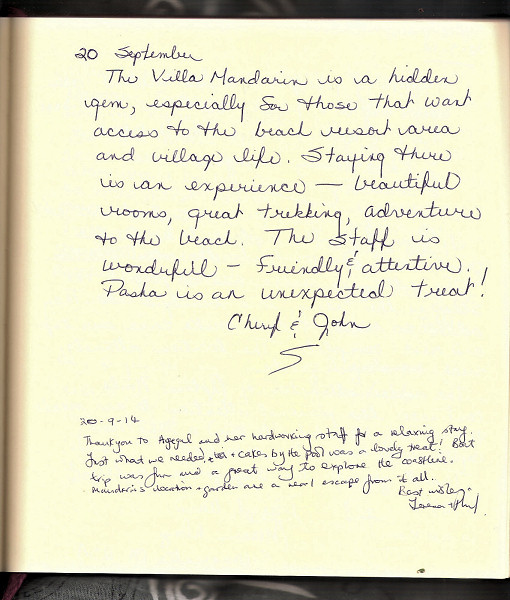 20 September
The Villa Mandarin is a hidden
gem, especially for those that want
access to the beach resort area
and village life. Staying there
is an experience — beautiful
rooms, great trekking, adventure
to the beach. The staff is
wonderfull – friendly & attentive.
Pasha is an unexpected treat!
Cheryl & John
20-9-14
Thankyou to Aysegul and her hardworking staff for a relaxing stay.
Just what we needed, tea + cakes by the pool was a lovely treat! Boat
trip was fun and a great way to explore the coastline.
Mandarin's location + garden are a real escape from it all.
Best wishes